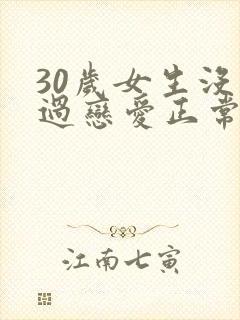 30歲女生沒
過戀愛正常
江南七寅